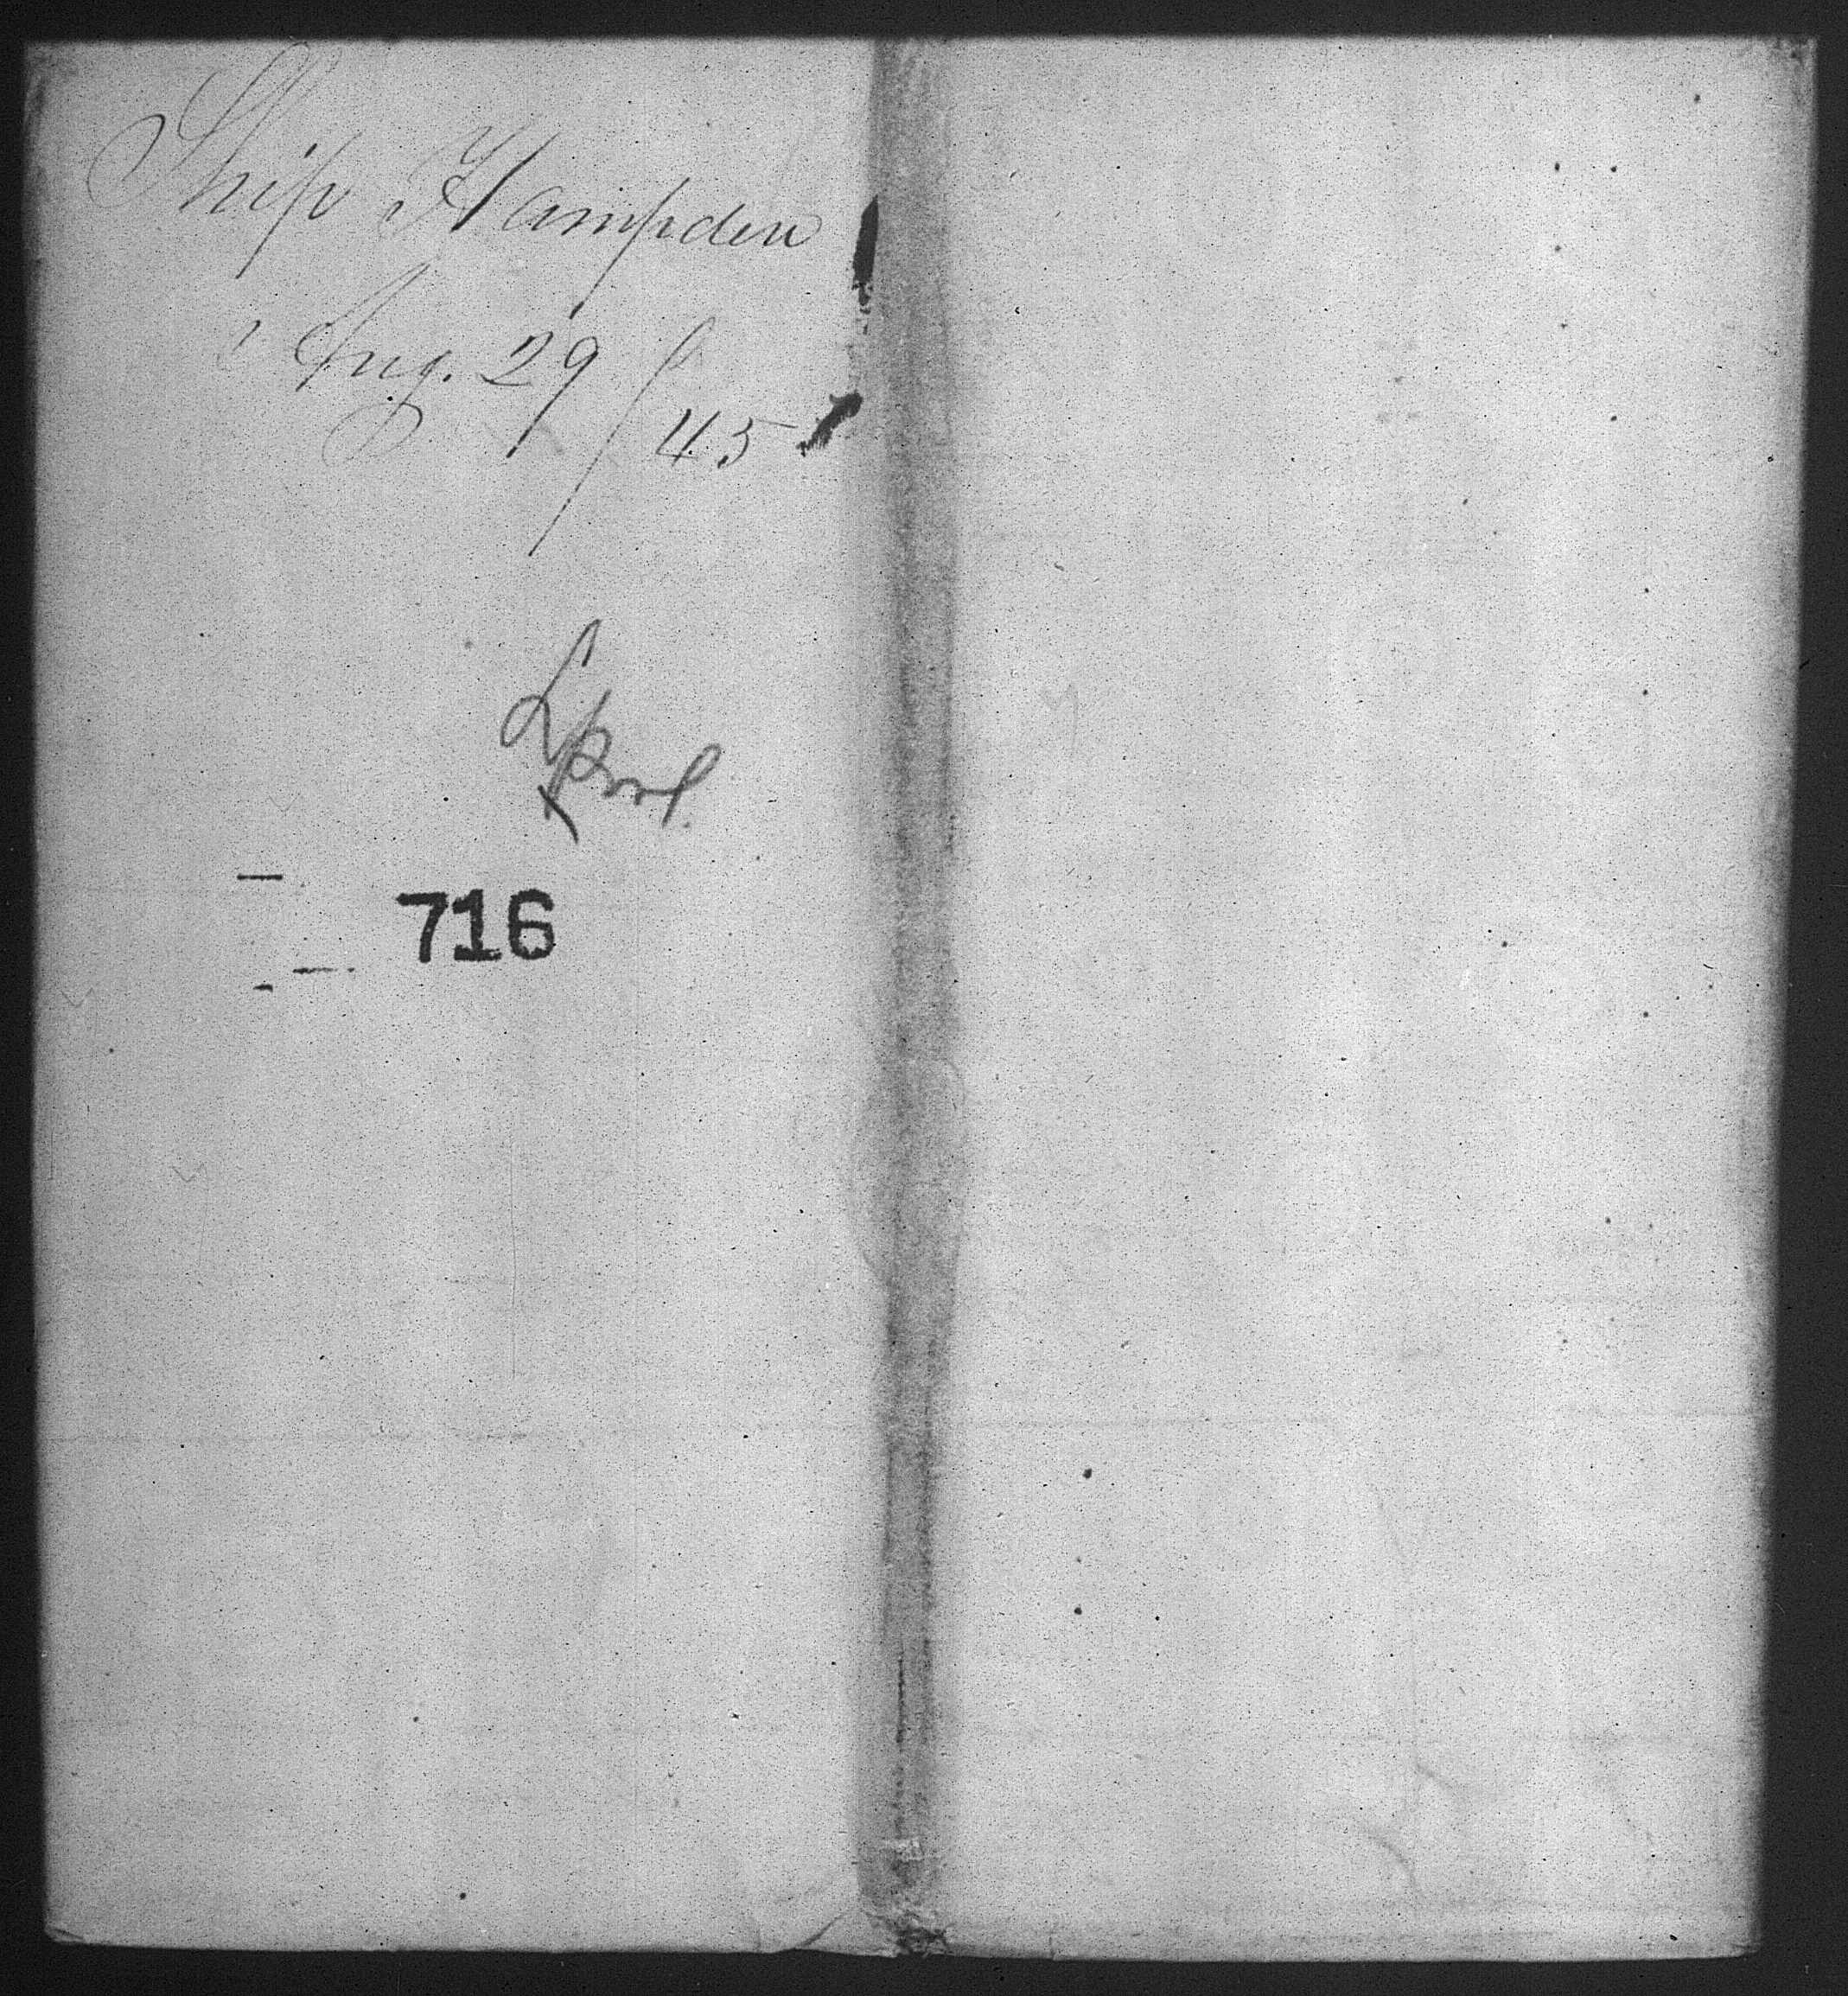 Ship Hampden
Aug. 29 / 45
Lpool.
716